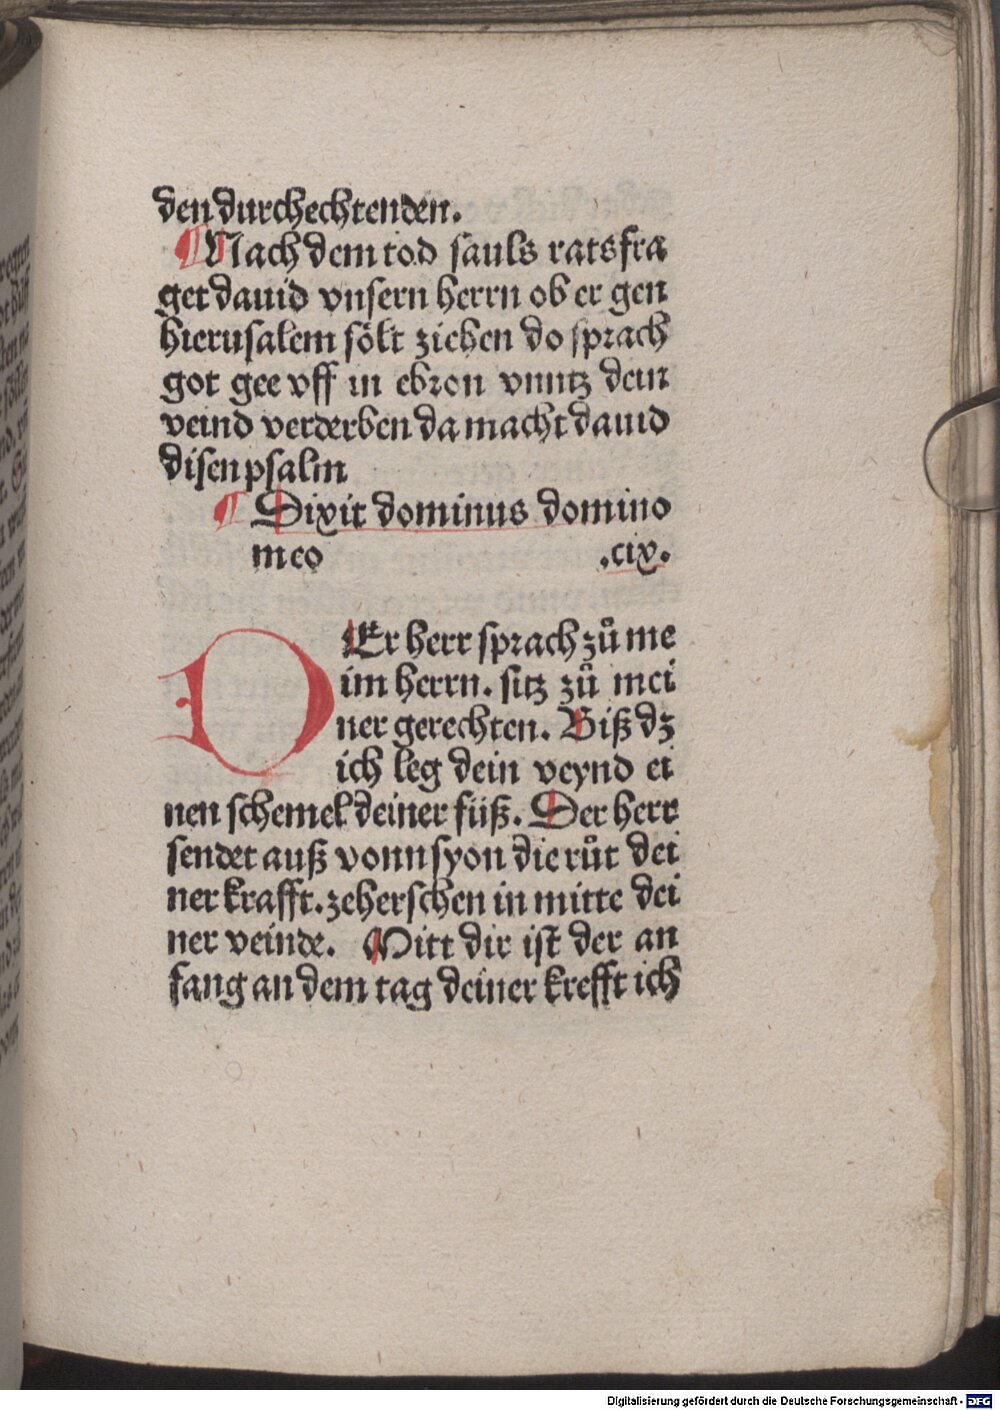 den durchechtenden.
¶ Nach dem tod sauls ratsfra
get dauid vnsern herrn ob er gen
hierusalem sölt ziehen do sprach
got gee vff in ebron vnntz dein
veind verderben da macht dauid
disen psalm
¶ Dixit dominus domino
meo .cix.
DEr herr sprach zů me
im herrn. sitz zů mei
ner gerechten. Biß dz
ich leg dein veynd ei
nen schemel deiner füß. Der herr
sendet auß vonn syon die růt dei
ner krafft. zeherschen in mitte dei
ner veinde. Mitt dir ist der an
fang an dem tag deiner krefft ich
Digitalisierung gefördert durch die Deutsche Forschungsgemeinschaft - DFG